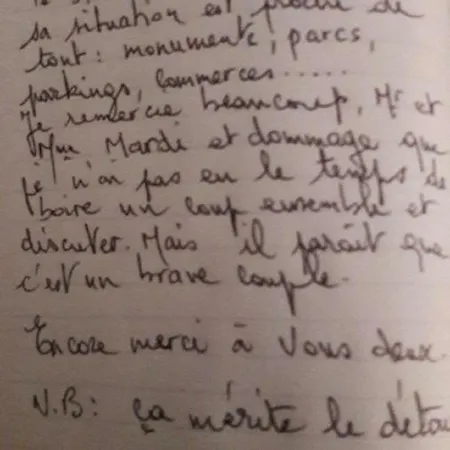 sa situation est proche de
tout : monuments, parcs,
parkings, commerces.....
Je remercie beaucoup, Mr et
Mme Mardi et dommage que
je n'ai pas eu le temps de
boire un coup ensemble et
discuter. Mais il paraît que
c'est un brave couple.
Encore merci à Vous deux.
N.B: ça mérite le détou